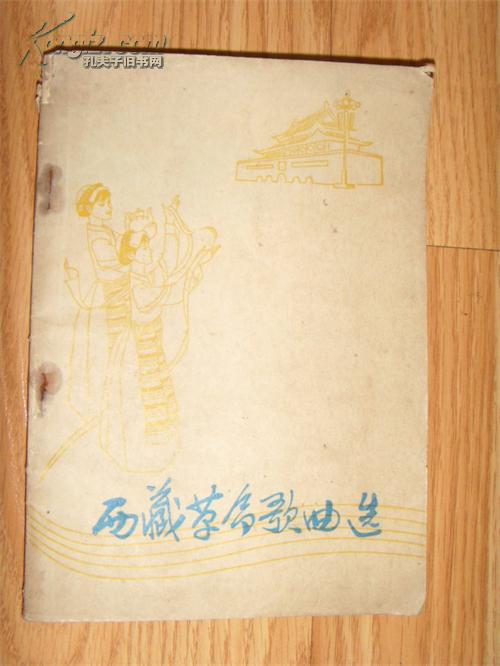 Kongfz.com
孔夫子旧书网
西藏革命歌曲选